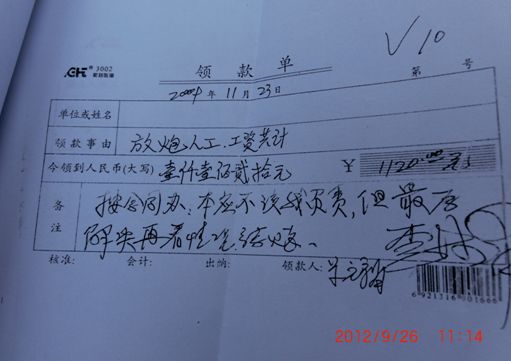 V10
CHT® 3002
领 款 单
2009年11月23日 第 号
单位或姓名
领款事由 放炮人工.工资共计
今领到人民币(大写) 壹仟壹佰贰拾元 ¥ 1120.00元
备注 按合同办,本应不该我负责,但最后
解决再看情况结账。
核准: 会计: 出纳: 领款人:
6 921316 001666
2012/9/26 11:14